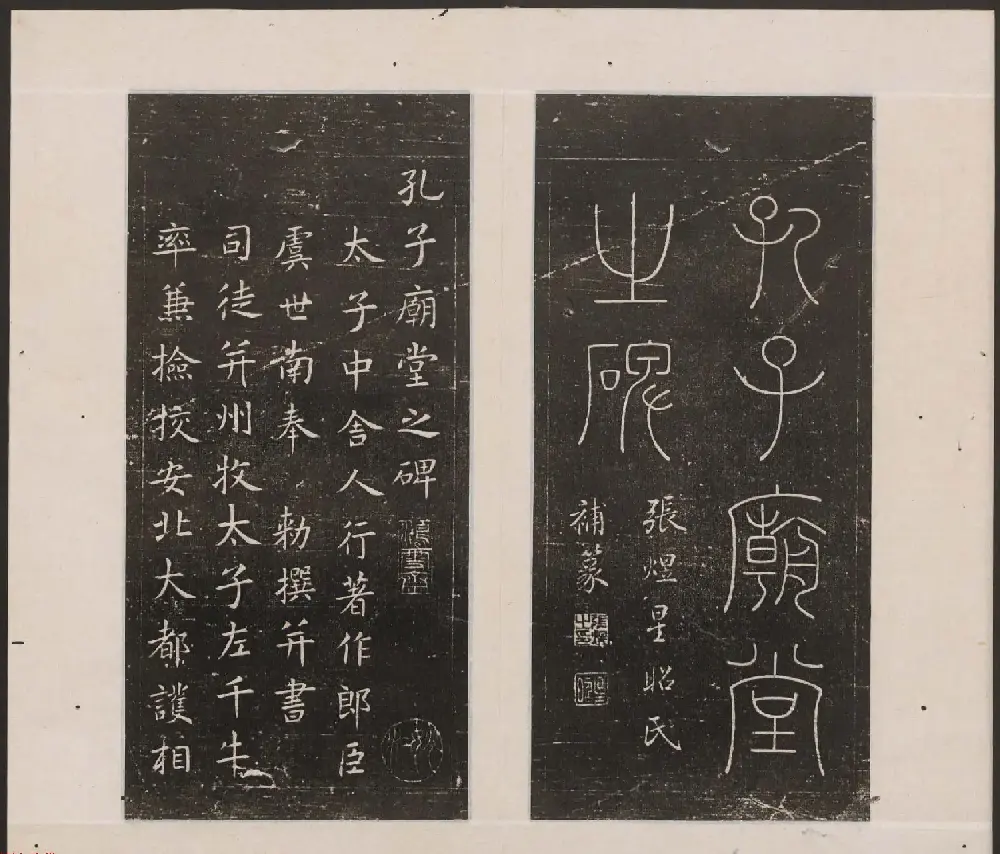 孔子廟堂
之碑
張煌星昭氏
補篆
孔子廟堂之碑
太子中舍人行著作郎臣
虞世南奉 勅撰并書
司徒并州牧太子左千牛
率兼撿挍安北大都護相